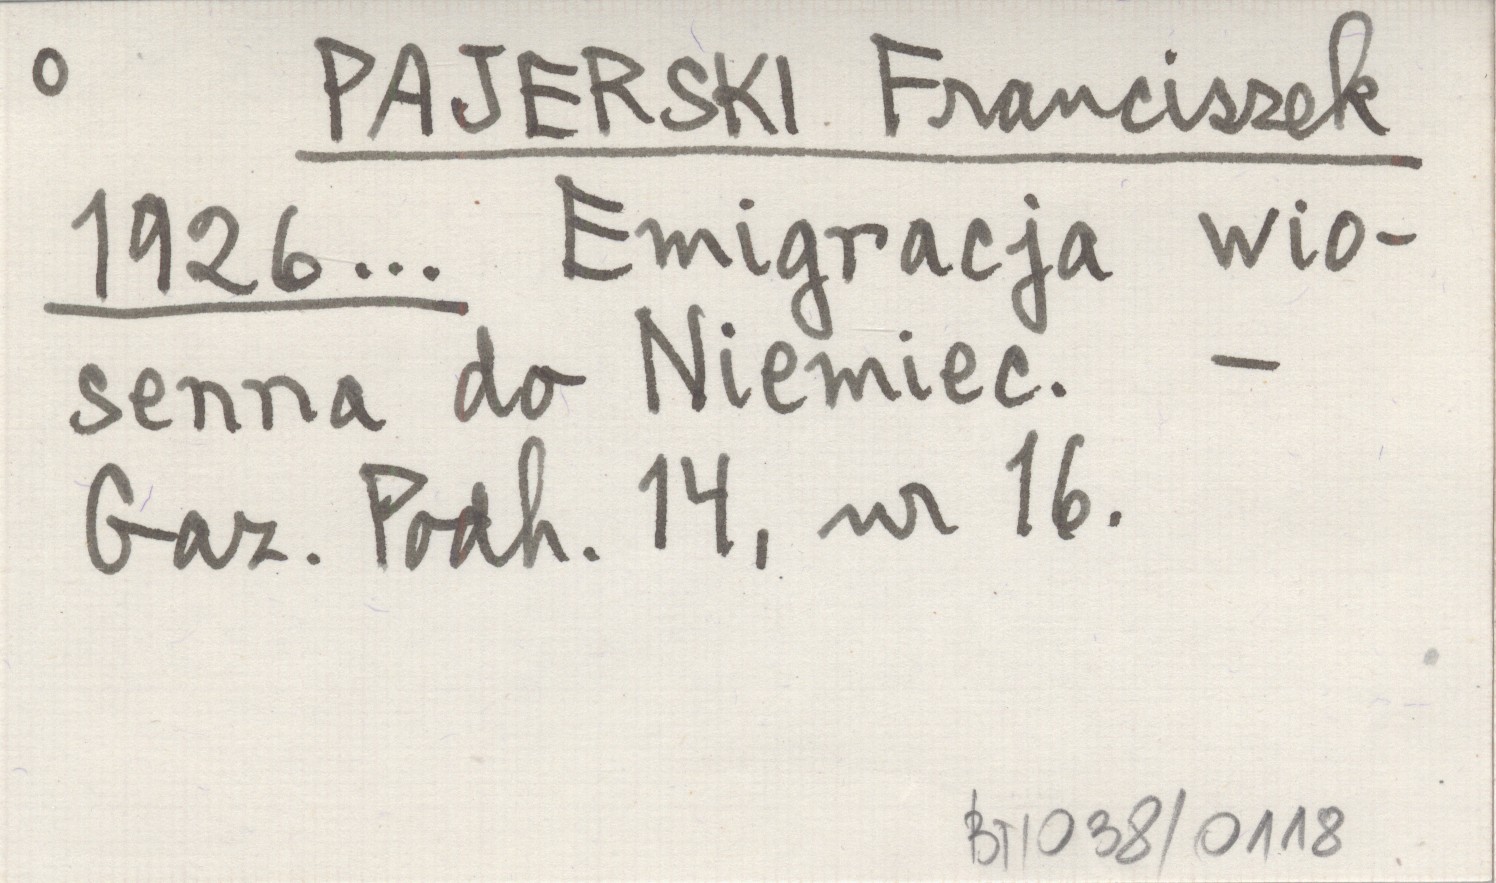 o PAJERSKI Franciszek
1926... Emigracja wio-
senna do Niemiec. –
Gaz. Podh. 14, nr 16.
BT/038/0118